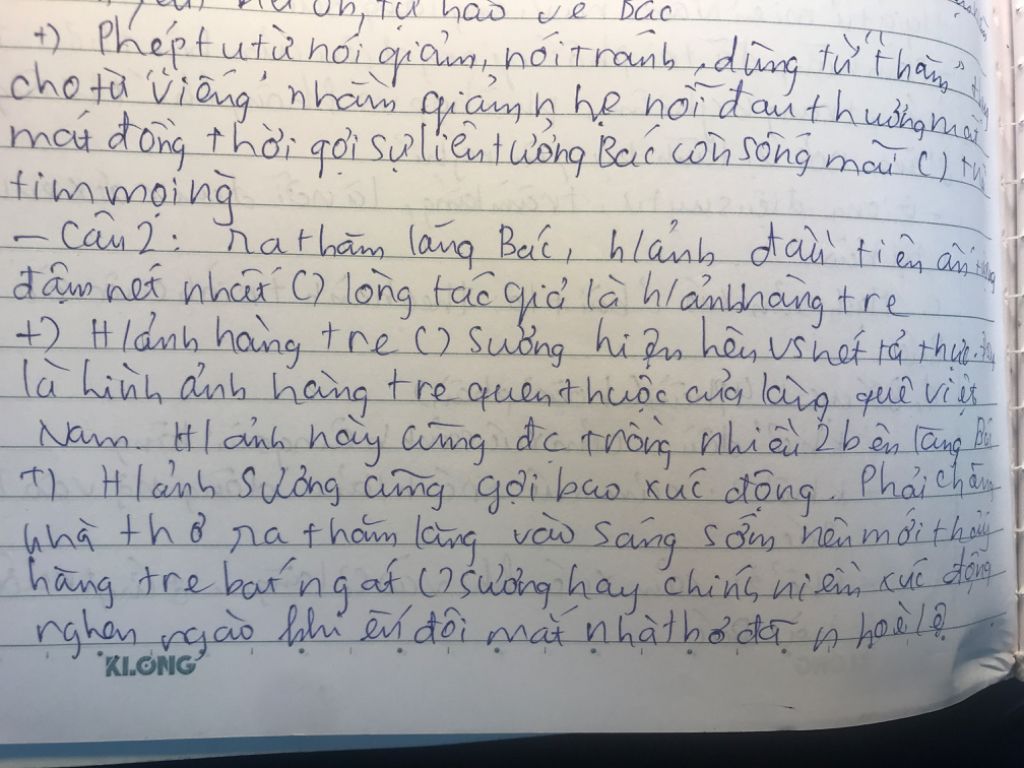 ơn, tự hào về Bác
+) Phép tu từ nói giảm, nói tránh, dùng từ "thăm"
cho từ "viếng" nhằm giảm nhẹ nỗi đau thương mất
mát đồng thời gợi sự liên tưởng Bác còn sống mãi ()
tim mọi ng
- Câu 2: ra thăm lăng Bác, h/ảnh đầu tiên ấn
đậm nét nhất () lòng tác giả là h/ảnh hàng tre
+) H/ảnh hàng tre () sương hiện lên vs nét tả thực.
là hình ảnh hàng tre quen thuộc của làng quê việt
Nam. H/ảnh này cũng đc trồng nhiều 2 bên lăng
+) H/ảnh sương cũng gợi bao xúc động. Phải chăng
nhà thơ ra thăm lăng vào sáng sớm nên mới thấy
hàng tre bát ngát () sương hay chính niềm xúc động
nghẹn ngào khi đôi mắt nhà thơ đã nhoè lệ
KLONG